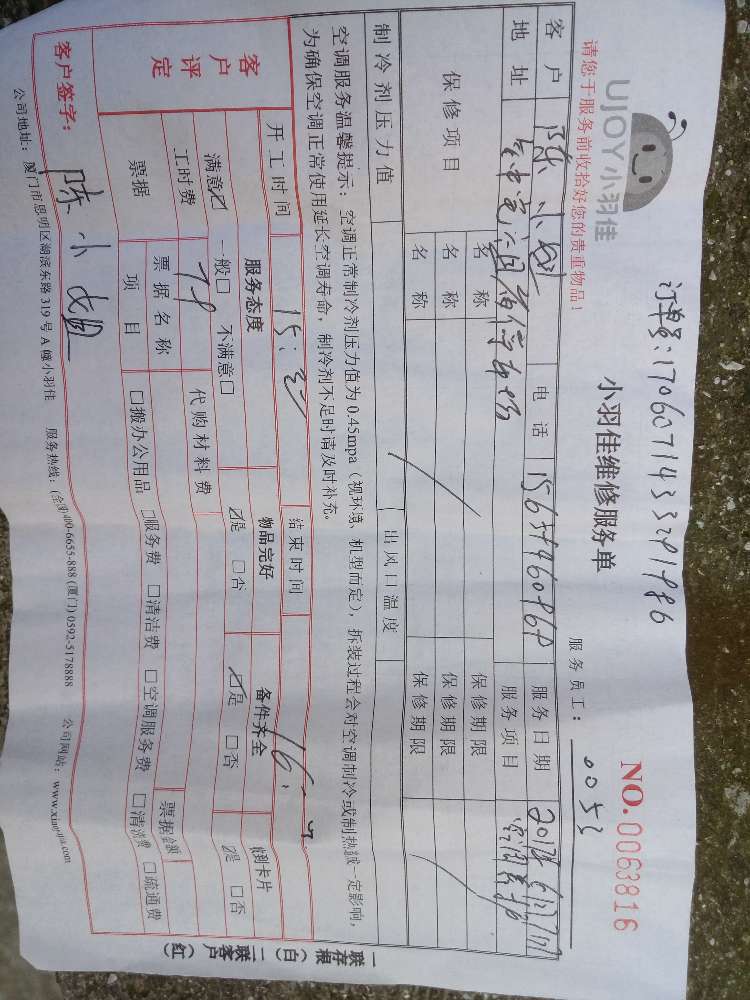 订单号:1706071433291986
UJOY小羽佳
小羽佳维修服务单
NO.0063816
请您于服务前收拾好您的贵重物品!
服务员工: 0053
客户 陈小 电话 服务日期
地址 服务项目
保修项目 名称 保修期限
名称 保修期限
名称 保修期限
制冷剂压力值 出风口温度
空调服务温馨提示:空调正常制冷剂压力值为0.45mpa(视环境、机型而定),拆装过程会对空调制冷或制热誠一定影响,
为确保空调正常使用延长空调寿命,制冷剂不足时请及时补充。
开工时间 15: 结束时间 16:
客户评定
服务态度 物品完好 备件齐全 卡片
满意☑ 一般□ 不满意□ ☑是 □否 ☑是 □否 ☑是 □否
工时费 79 代购材料费
票据 票据名称 票据金额
项目 □搬办公用品 □服务费 □清洁费 □空调服务费 □清洗费 □疏通费
客户签字: 陈小
公司地址:厦门市思明区湖滨东路319号A幢小羽佳 服务热线:(全国)400-6655-888 (厦门) 0592-5178888 公司网站:www.xiaoyujia.com
一联存根(白) 二联客户(红)